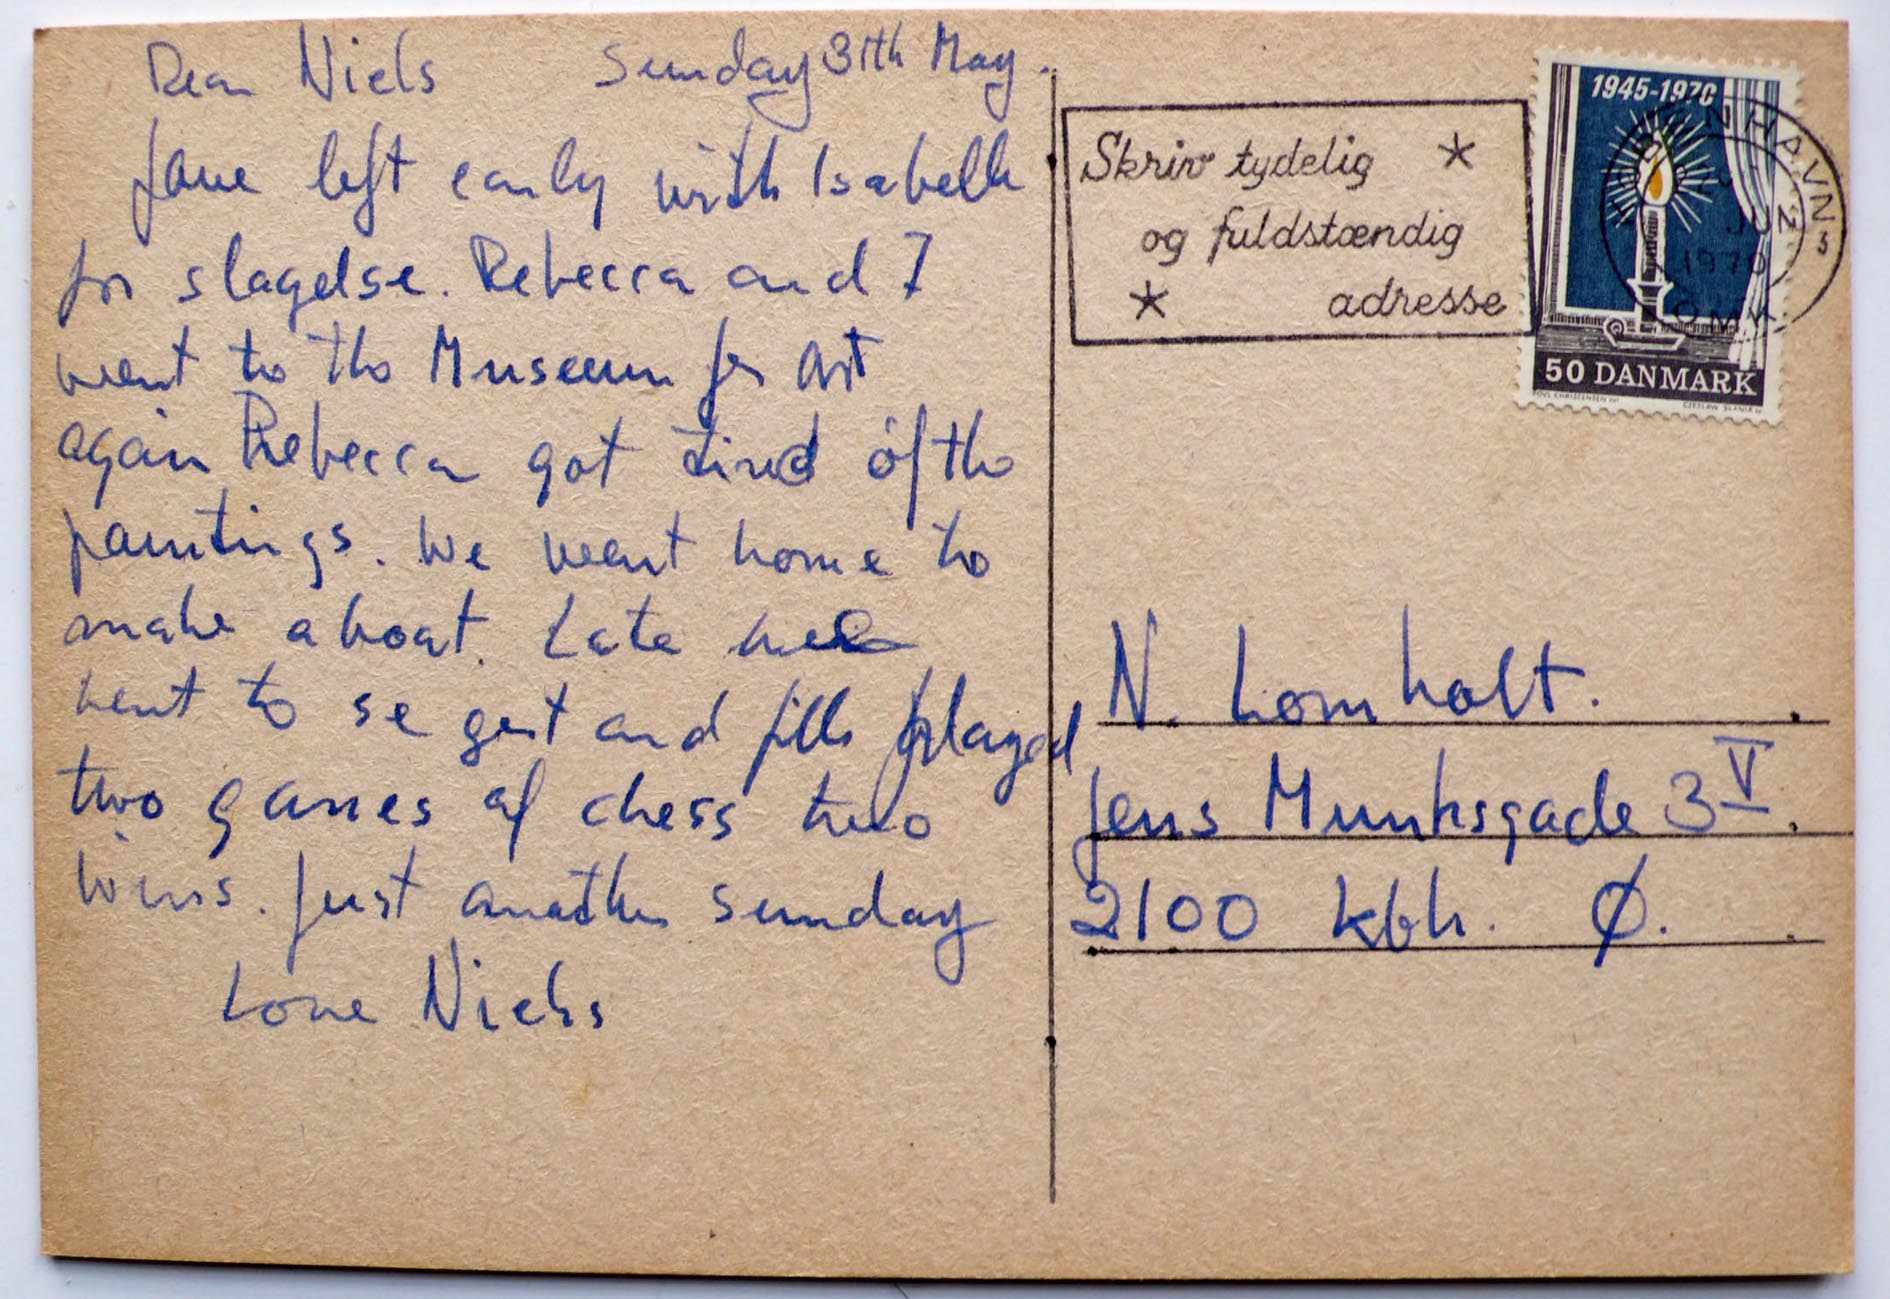 Dear Niels Sunday 31th May.
Jane left early with Isabelle
for slagelse. Rebecca and I
went to the Museum for Art
again Rebecca got tired of the
paintings. We went home to
make a boat. Late
went to se gert and played
two games of chess two
wins. Just another sunday
Love Niels
1945-1970
50 DANMARK
POVL CHRISTENSEN CZESLAW SLANIA
KØBENHAVN
1970
OMK
Skriv tydelig *
og fuldstændig
* adresse
N. Lomholt.
Jens Munksgade 3 V.
2100 kbh. Ø.